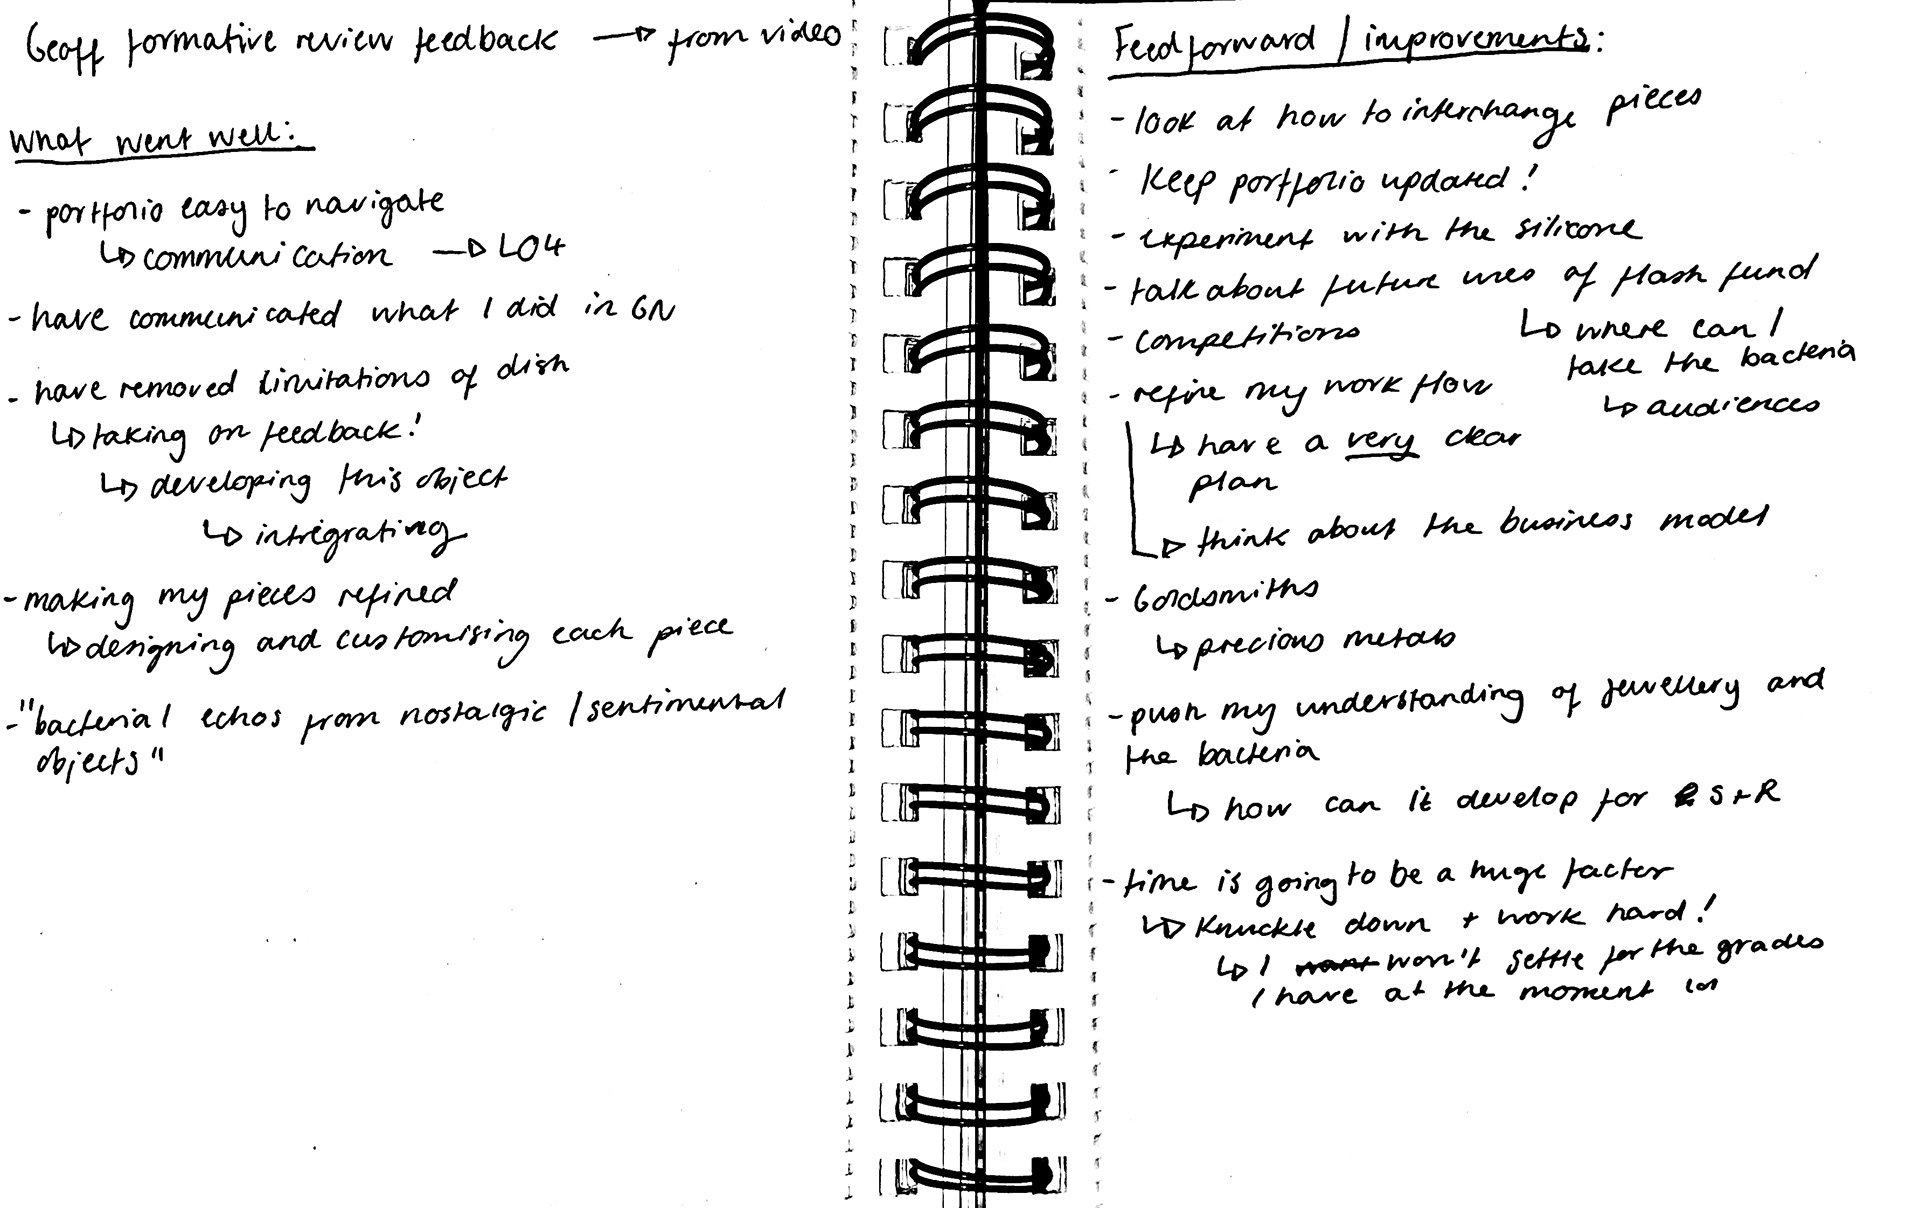 Geoff formative review feedback → from video
What went well:
- portfolio easy to navigate
↳ communication → LO4
- have communicated what I did in GN
- have removed limitations of dish
↳ taking on feedback!
↳ developing this object
↳ integrating
- making my pieces refined
↳ designing and customising each piece
- "bacterial echos from nostalgic / sentimental
objects"
Feedforward / improvements:
- look at how to interchange pieces
- Keep portfolio updated!
- experiment with the silicone
- talk about future uses of flash fund
↳ where can I
take the bacteria
↳ audiences
- competitions
- refine my work flow
↳ have a very clear
plan
↳ think about the business model
- Goldsmiths
↳ precious metals
- push my understanding of jewellery and
the bacteria
↳ how can it develop for S+R
- time is going to be a huge factor
↳ Knuckle down + work hard!
↳ I won't settle for the grades
I have at the moment